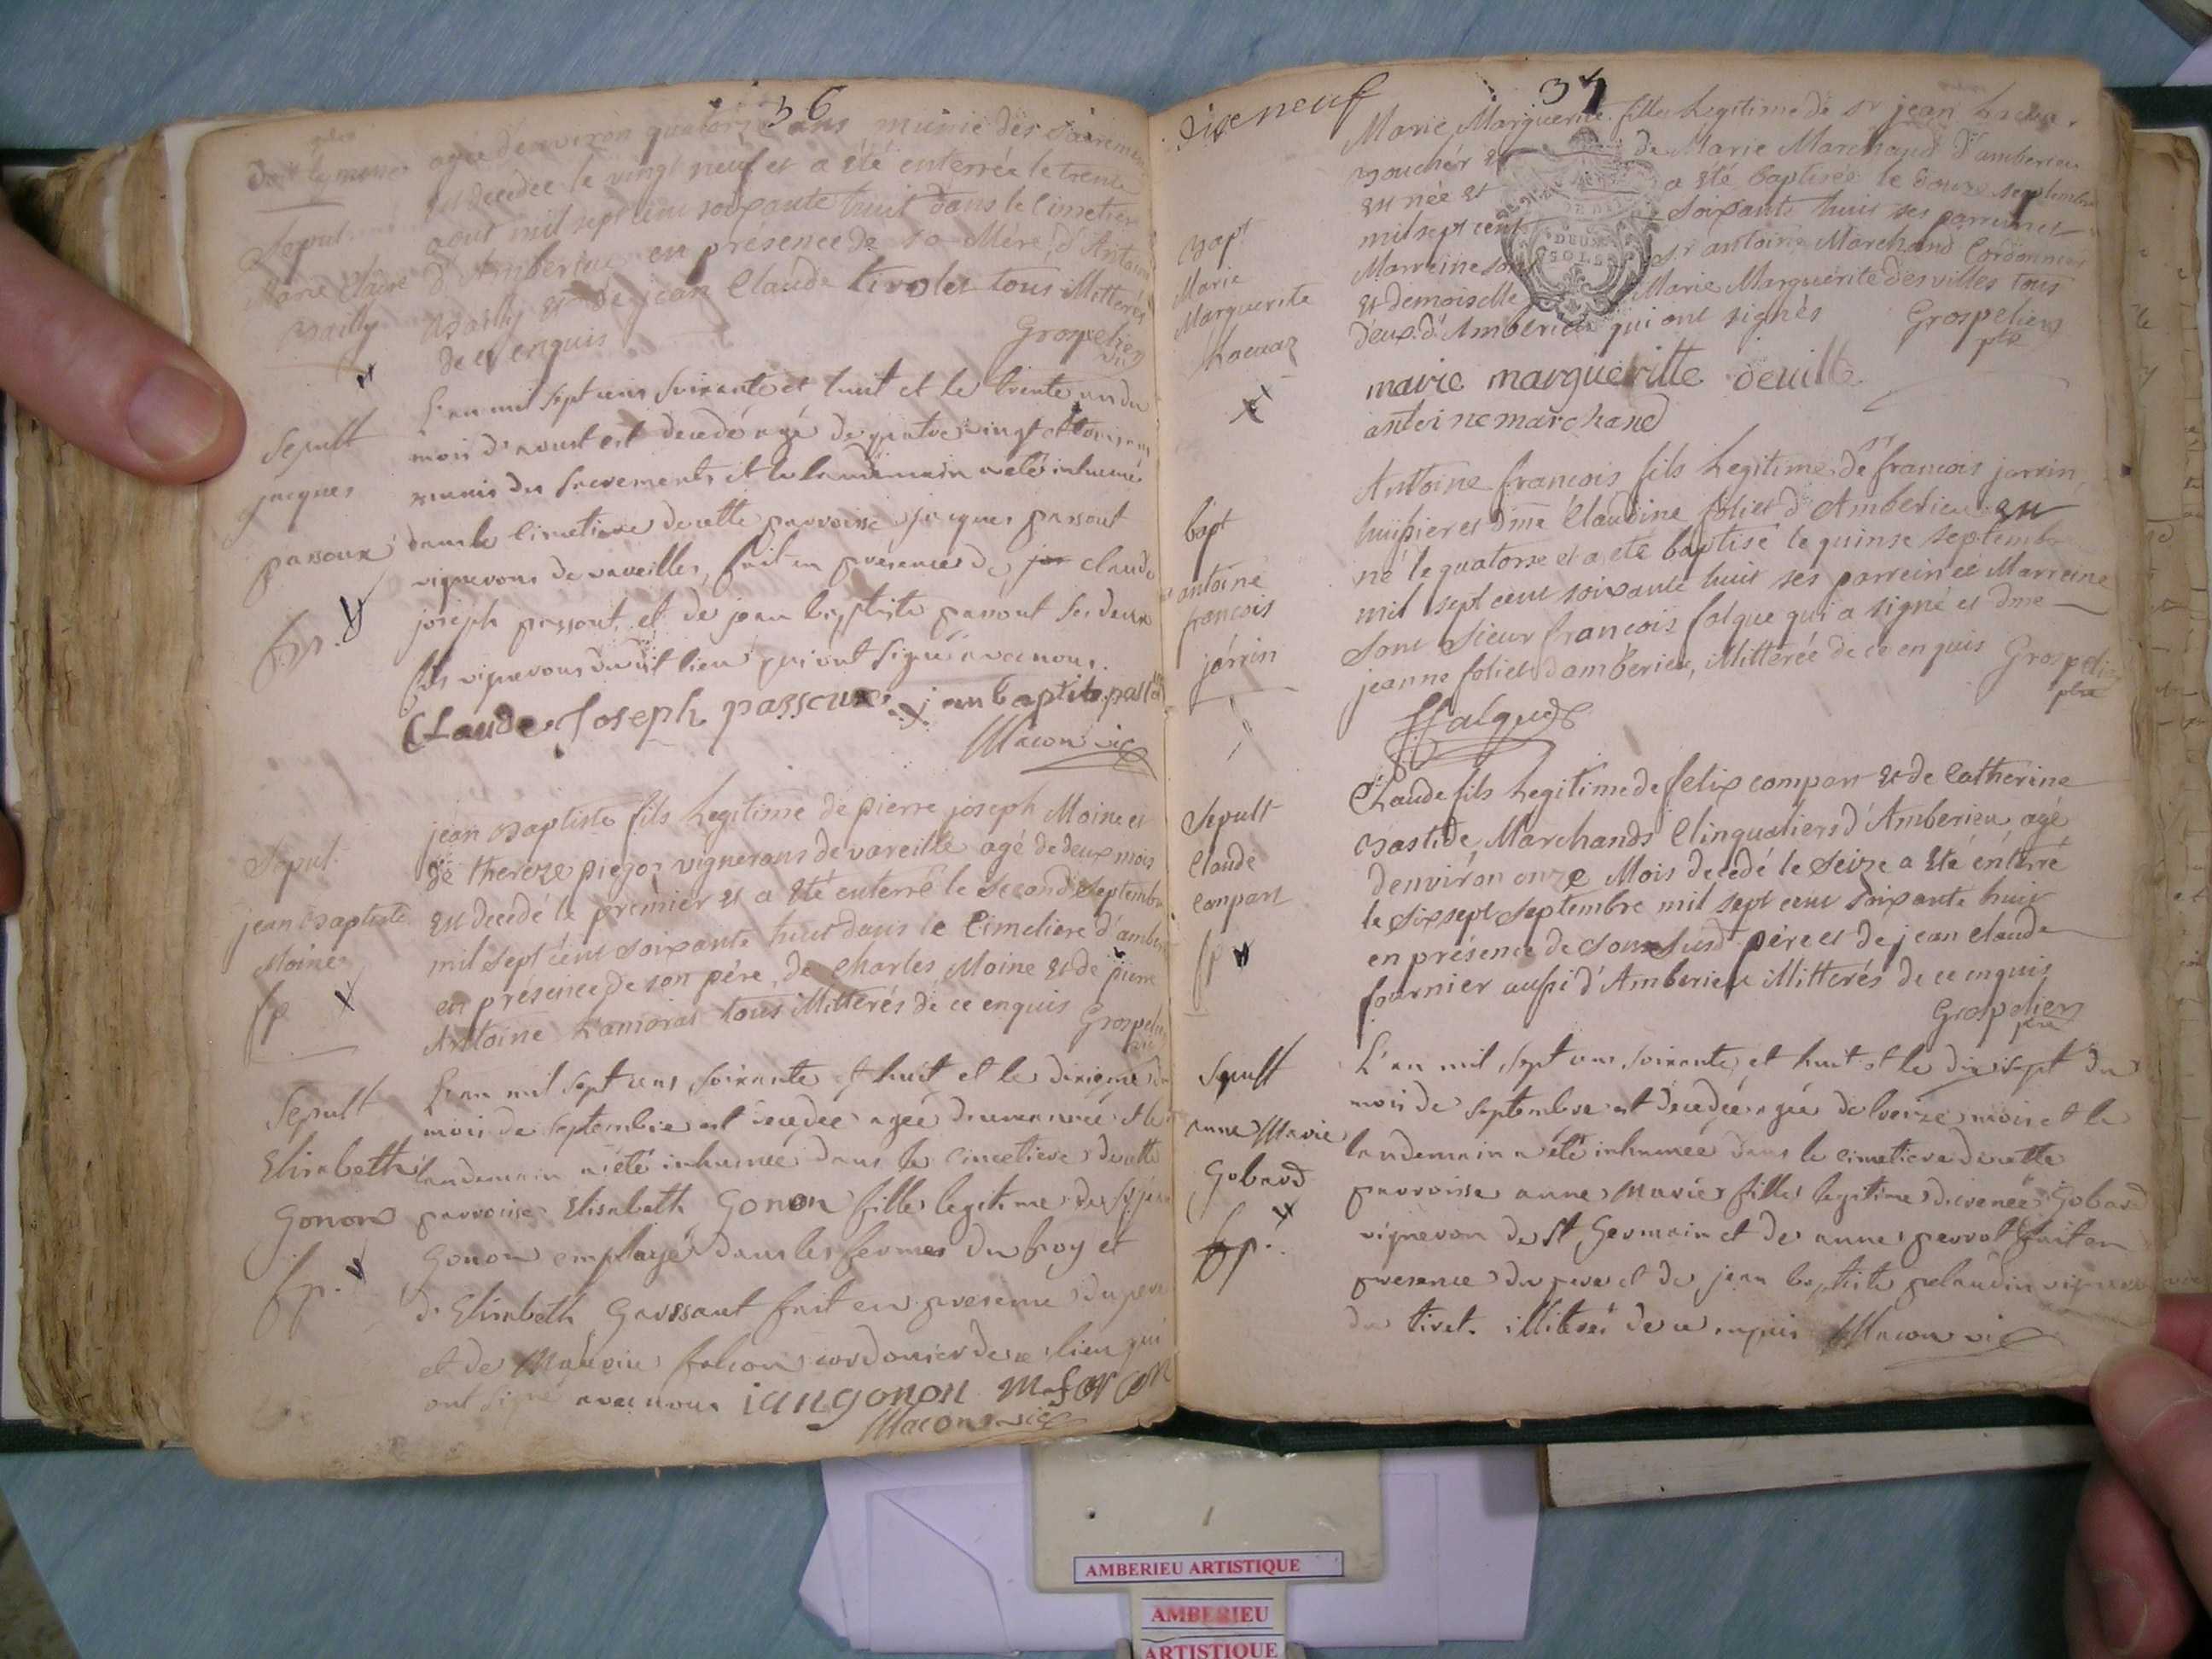 36
agée denviron quatorze ans munie des sacremens
est decedée le vingt neuf et a été enterrée le trente
aout mil sept cent soixante huit dans le Cimetiere
d'Amberieu en présence de sa Mére, d'Antoine
Bailly et de jean Claude tivolet tous illitterés
de ce enquis Grospelier
Sepult
Marie Claire
Bailly
L'an mil sept cens soixante et huit et le trente un du
mois d'aoust est decedé agé de quatre vingt et
munis des sacrements et le landemain a eté inhumé
dans le cimetiere de cette parroisse jacques passout
vigneron de vareilles, fait en présence de claude
joseph passout et de jean baptiste passout ses deux
fils vignerons dudit lieu qui ont signé avec nous.
Claude Joseph passoux jean baptiste
Macon vic
Sepult
jacques
passoux
fp.
jean Baptiste fils Legitime de pierre joseph Moine et
de thereze vignerons de vareille agé de deux mois
est decedé le premier et a été enterré le second Septembre
mil sept cent soixante huit dans le Cimetiere d'amberieu
en présence de son pére, de Charles Moine et de pierre
Antoine Lamoras tous illitterés de ce enquis Grospelier
Sepul.
jean Baptiste
Moine
fp
L'an mil sept cens soixante et huit et le dixieme du
mois de septembre est decedée agée d'une année et le
landemain a été inhumée dans le cimetiere de cette
parroisse Elisabeth Gonon fille legitime de Sr jean
Gonon employé dans les fermes du Roy et
d'Elisabeth Garssaut fait en presence du pere
et de falcon cordonier de ce lieu qui
ont signé avec nous iangonon
Macon vic
Sepult
Elisabeth
Gonon
fp.
dixe neuf
37
Marie Marguerite fille Legitime de Sr jean
Boucher et de Marie Marchand d'amberieu
est née et a été baptisée le douze septembre
mil sept cent soixante huit ses parrein et
Marreine sont Sr antoine Marchand Cordonnier
et demoiselle Marie Marguérite desvilles tous
deux d'Amberieu qui ont signés Grospelier
ptre
DEUX
SOLS
marie margueritte deville
antoine marchand
bapt
Marie
Marguerite
Antoine françois fils Legitime de Sr françois jarrin,
huissier et dme Claudine foliet d'Amberieu est
né le quatorse et a été baptisé le quinse septembre
mil sept cent soixante huit ses parrein et Marreine
sont Sieur françois falque qui a signé et dme
jeanne foliet d'amberieu, illitterée de ce enquis Grospelier
ptre
ffalque
bapt
antoine
francois
jarrin
Claude fils Legitime de felix compart et de Catherine
Bastide Marchands Clinqualiers d'Amberieu agé
denviron onze Mois decedé le seize a été enterré
le dixsept septembre mil sept cent soixante huit
en présence de son susd pére et de jean claude
fournier aussi d'Amberieu illitterés de ce enquis
Grospelier
ptre
Sepult
Claude
Compart
fp
L'an mil sept cens soixante et huit et le dix sept du
mois de septembre est decedée agée de treize mois et le
landemain a été inhumée dans le cimetiere de cette
parroisse anne Marie fille legitime de renée Gobard
vigneron de St Germain et de anne perrot fait en
presence du pere et de jean baptiste pelaudin vigneron
du tiret. illiteré de ce enquis Macon vic
Sepult
anne Marie
Gobard
fp.
AMBERIEU ARTISTIQUE
AMBERIEU
ARTISTIQUE